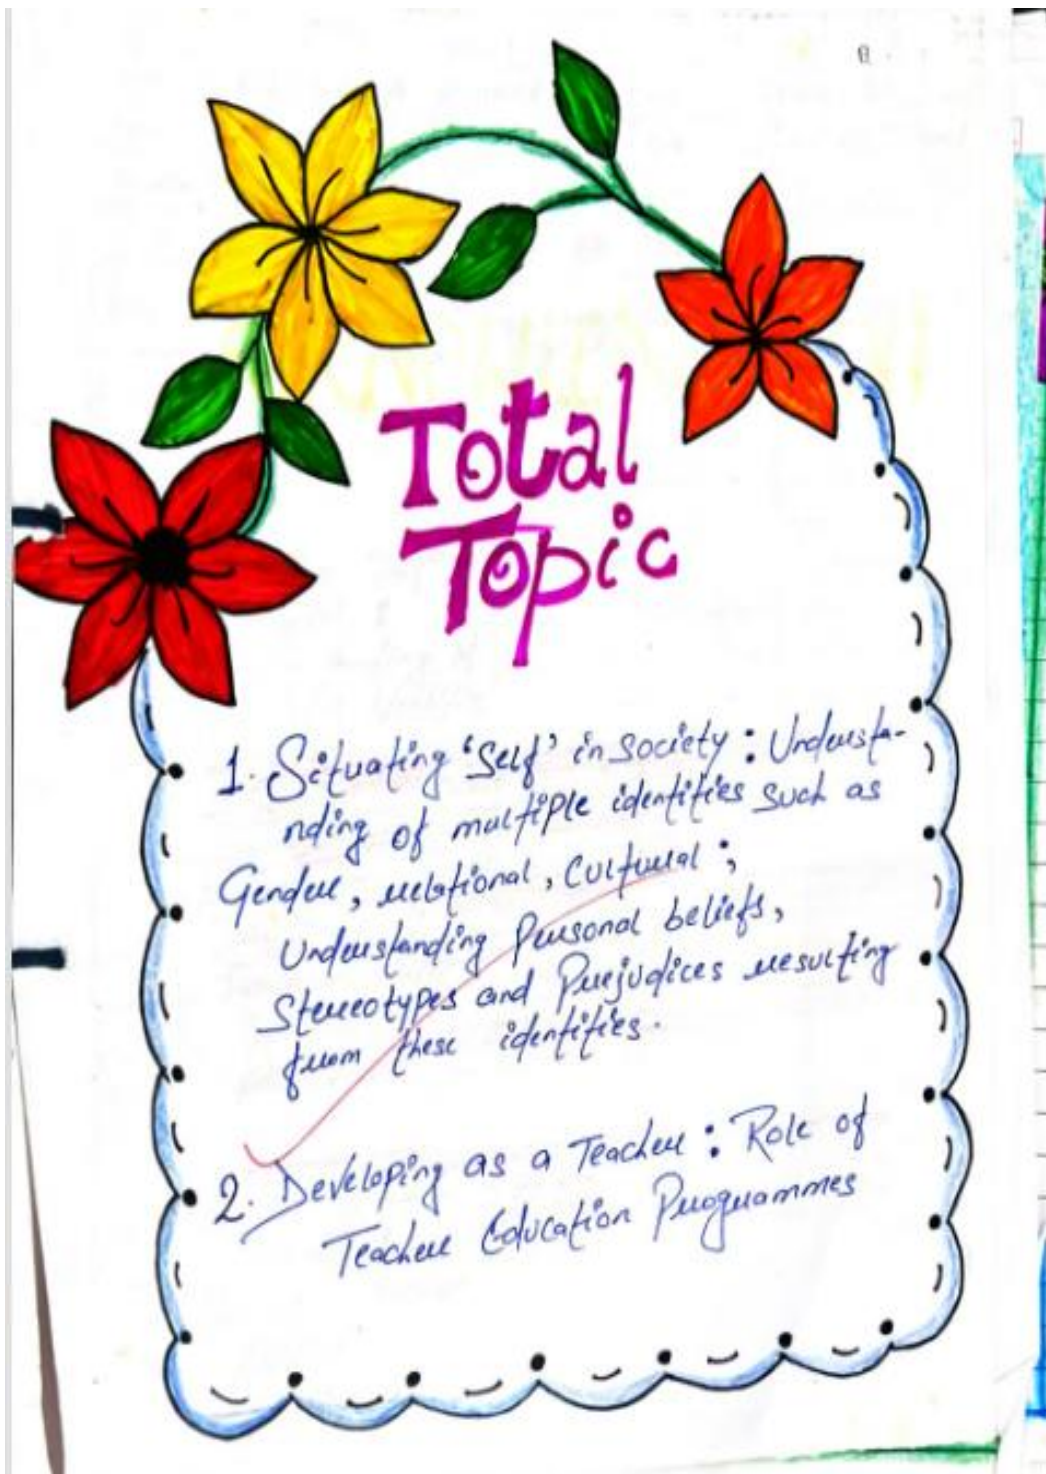 Total
Topic
1. Situating 'Self' in Society : Understa-
nding of multiple identities such as
Gender, relational, Cultural ;
Understanding Personal beliefs,
Stereotypes and Prejudices resulting
from these identities.
2. Developing as a Teacher : Role of
Teacher Education Programmes